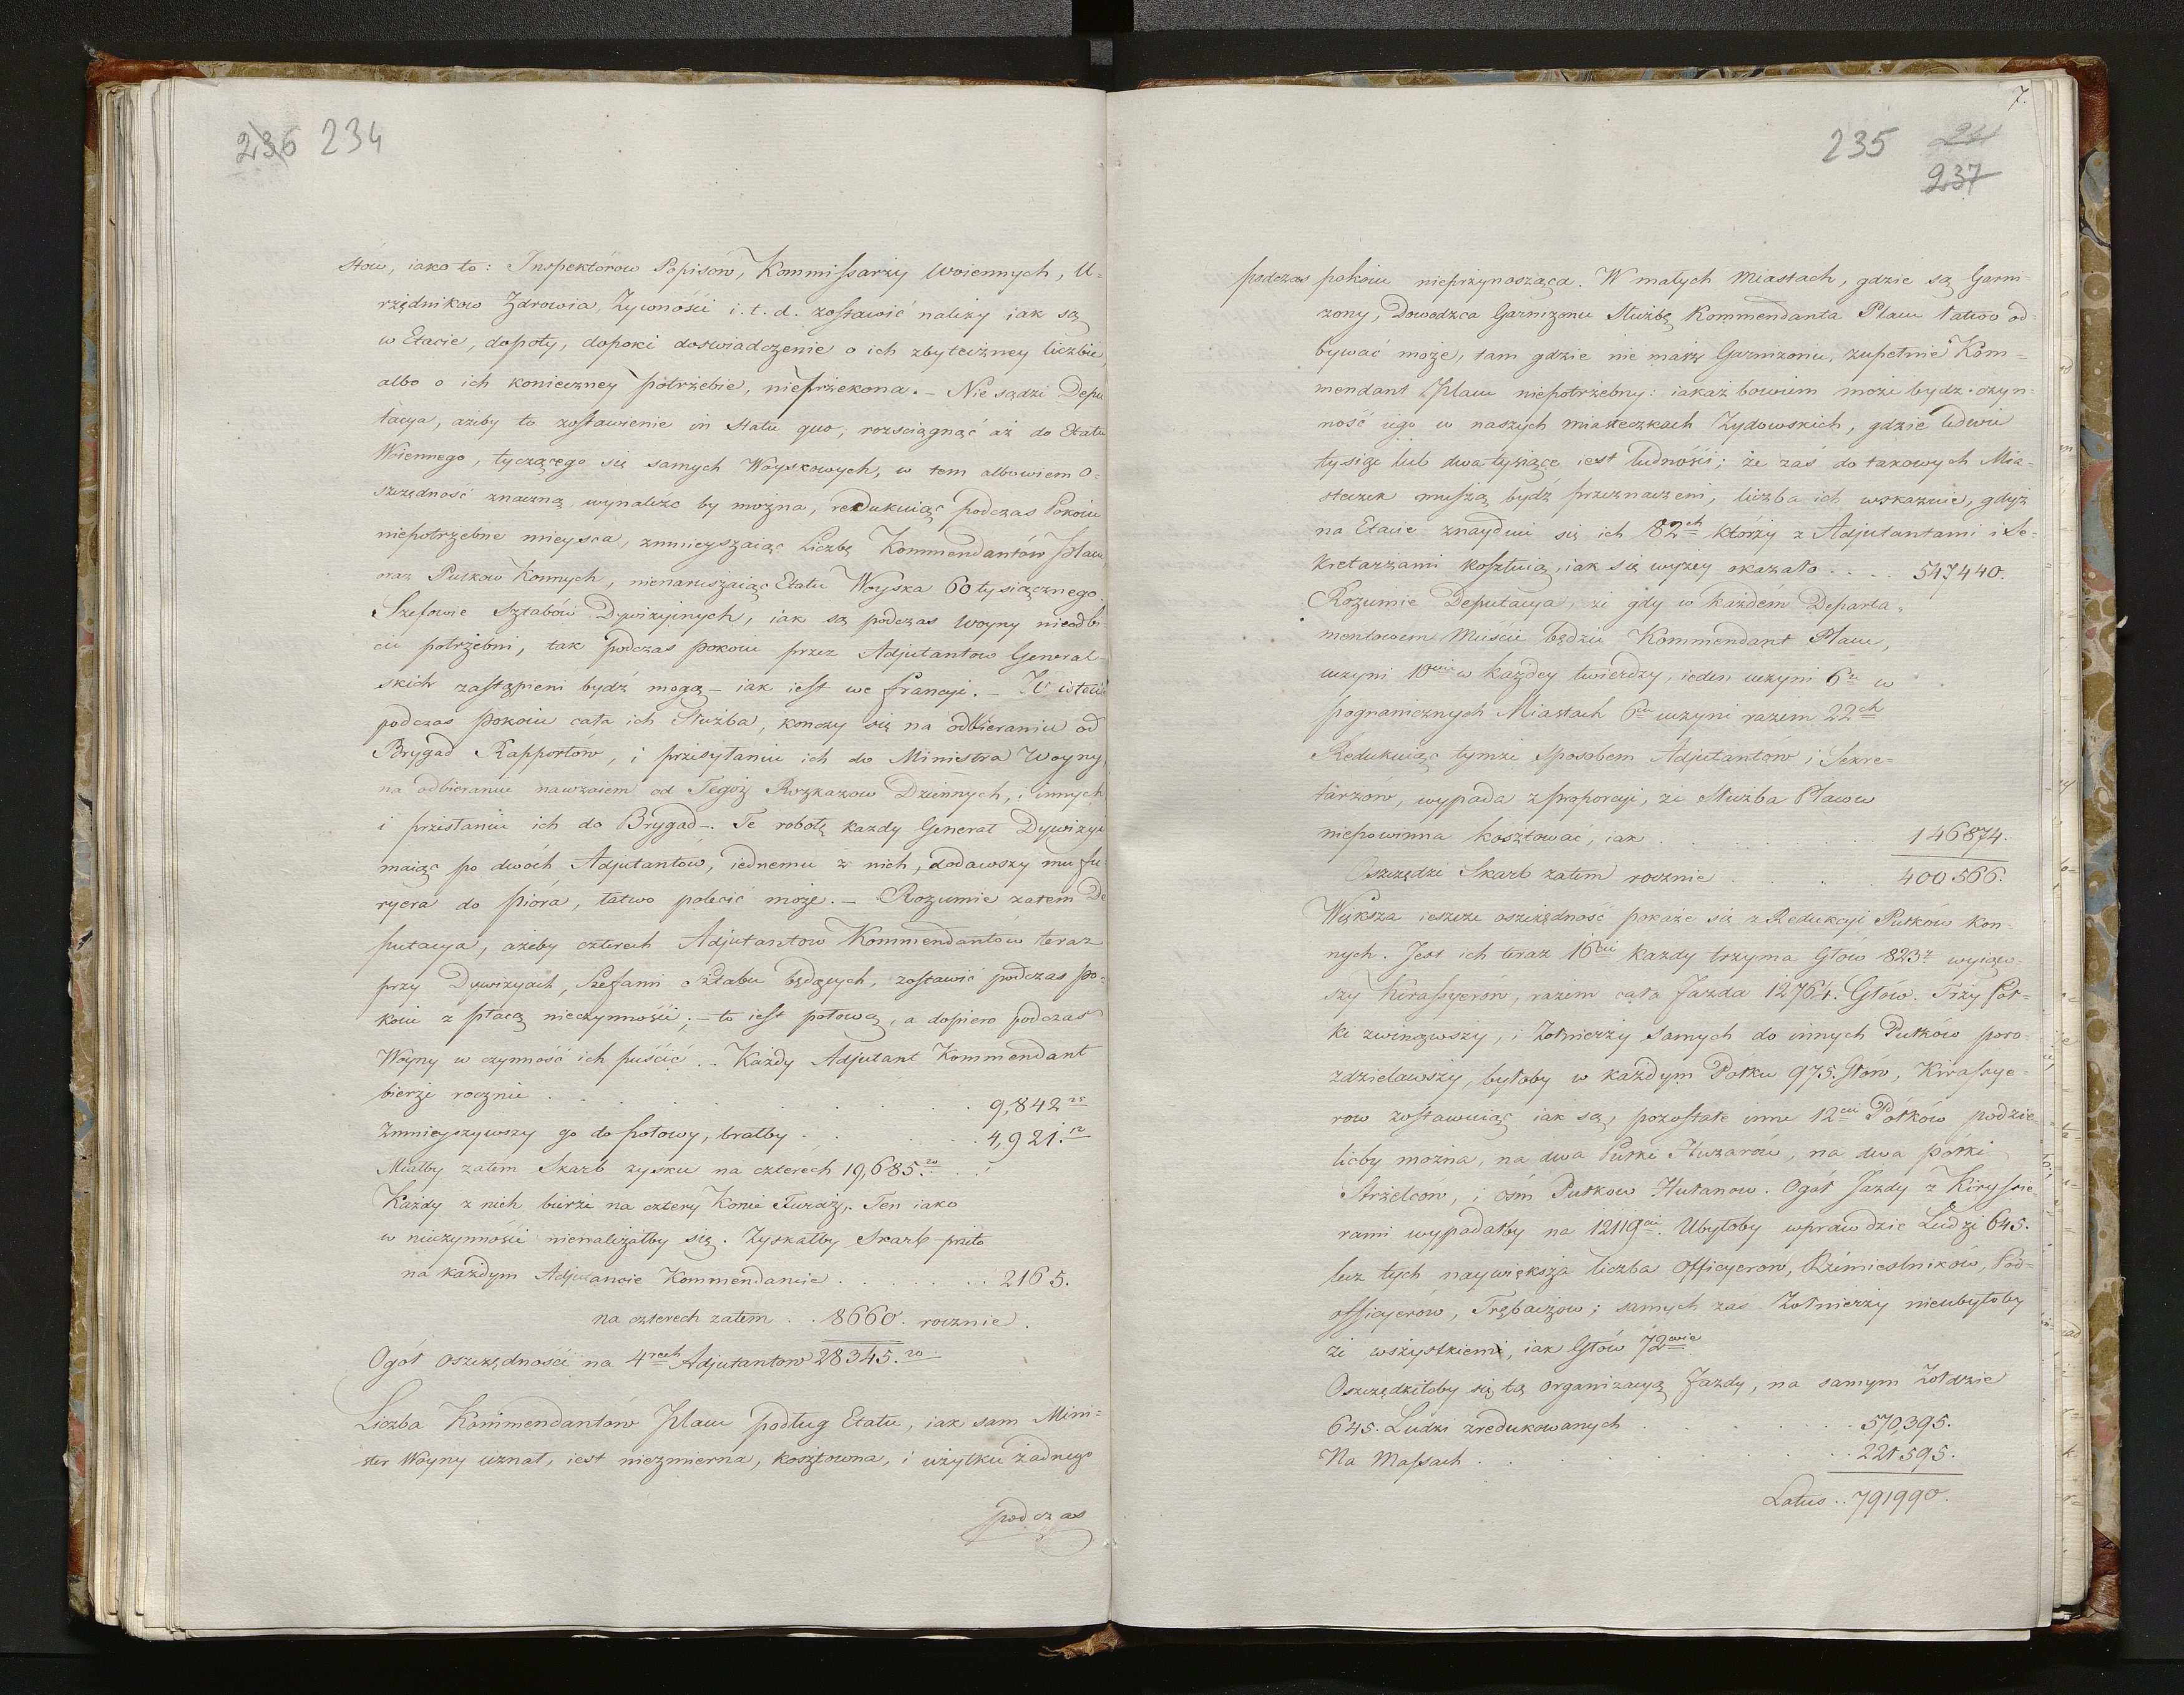 236 234
stów, iako to: Inspektórow Popisów, Kommissarży Woiennych, U-
rzędnikow Zdrowia, Zywności i. t. d. zostawić należy iak są
w Etacie, dopóty, dopóki doświadczenie o ich zbyteczney liczbie,
albo o ich konieczney potrzebie, nieprzekona. – Nie sądzi Depu
tacya, ażeby to zostawienie in statu quo, rozciągnąć aż do Etatu
Woiennego, tyczącego się samych Woyskowych, w tem albowiem o-
szczędność znaczną wynaleźć by można, redukuiąc podczas Pokoiu
niepotrzebne mieysca, zmnieyszaiąc Liczbę Kommendantów Placu
oraz Pułkow Konnych, nienaruszaiąc Etatu Woyska 60 tysiącznego.
Szefowie Sztabów Dywizyinych, iak są podczas Woyny nieodbi-
cie potrzebni, tak podczas pokoiu przez Adjutantow General-
skich zastąpieni bydź mogą – iak iest we francyi. – W istocie
podczas pokoiu cała ich Służba, konczy się na odbieraniu od
Brygad Rapportów, i przesyłaniu ich do Ministra Woyny
na odbieraniu nawzaiem od Tegoż Rozkazow Dziennych, i innych
i przesłaniu ich do Brygad –. Te robotę kazdy Generał Dywizyi
maiąc po dwóch Adjutantow, iednemu z nich, dodawszy mu fu-
ryera do pióra, łatwo polecić może. – Rozumie zatem De
putacya, ażeby czterech Adjutantow Kommendantów teraz
przy Dywizyach, Szefami Sztabu będących, zostawić podczas po-
koiu z płacą nieczynności; – to iest połową, a dopiero podczas
Woyny w czynność ich puścić. – Każdy Adjutant Kommendant
bierze rocznie . . . . . . . . 9,842 25
Zmnieyszywszy go do połowy, brałby . . . . 4,921. 12
Miałby zatem Skarb zysku na czterech 19,685. 20 . .
Każdy z nich bierze na cztery Konie Furaż,. Ten iako
w nieczynności nienależałby się. Zyskałby Skarb przeto
na każdym Adjutancie Kommendancie . . . . . . . 2165.
na czterech zatem . . 8660. rocznie.
Ogół oszczędności na 4rech Adjutantow 28345. 20
Liczba Kommendantów Placu podług Etatu, iak sam Mini-
ster Woyny uznał, iest niezmierna, kosztowna, i użytku żadnego
podczas
7.
235
237
podczas pokoiu nieprzynosząca. W małych Miastach, gdzie są Garni-
zony, Dowodzca Garnizonu Służbę Kommendanta Placu łatwo od-
bywać może, tam gdzie nie masz Garnizonu, zupełnie Kom-
mendant Placu niepotrzebny: iakaż bowiem może bydz czyn-
ność iego w naszych miasteczkach Zydowskich, gdzie ledwie
tysiąc lub dwa tysiące iest ludności; że zaś do takowych Mia-
steczek muszą bydź przeznaczeni, liczba ich wskazuie, gdyż
na Etacie znayduie się ich 82ch którzy z Adjutantami i Se-
kretarzami kosztuią, iak się wyżey okazało . . . . 547440.
Rozumie Deputacya, że gdy w każdem Departa-
mentowem Mieście będzie Kommendant Placu,
uczyni 10ciu w każdey twierdzy, ieden uczyni 6u w
pogranicznych Miastach 6ciu uczyni razem 22ch
Redukuiąc tymże sposobem Adjutantów i Sekre-
tarzów, wypada z proporcyi, że Służba Placu
niepowinna kosztować, iak . . . . . . . . 146874.
Oszczędzi Skarb zatem rocznie . . . . 400566.
Większa ieszcze oszczędność pokaże się z Redukcyi Pułków kon-
nych. Jest ich teraz 16cie każdy trzyma Głow 823 wyiąw-
szy Kirassyerów, razem cała Jazda 12764. Głów. Trzy Poł-
ki zwinąwszy, i Zołnierży samych do innych Pułków poro-
zdzielawszy, byłoby w każdym Połku 975. Głów, Kirassye-
row zostawuiąc iak są, pozostałe inne 12cie Połków podzie-
lićby można, na dwa Pułki Huzarów, na dwa połki
Strzelców, i ośm Pułkow Hułanow. Ogół Jazdy z Kiryssie-
rami wypadałby na 12119cie. Ubyłoby wprawdzie Ludzi 645.
lecz tych naywiększa liczba Officyerow, Rzemieslników, Pod-
officyerów, Trębaczow; samych zaś Zołnierzy nieubyłoby
ze wszystkiem, iak Głów 72wie
Oszczędziłoby się tą organizacyą Jazdy, na samym Zołdzie
645. Ludzi zredukowanych . . . . 570,395.
Na Massach . . . . . . . . 221595.
Latus . . 791990.